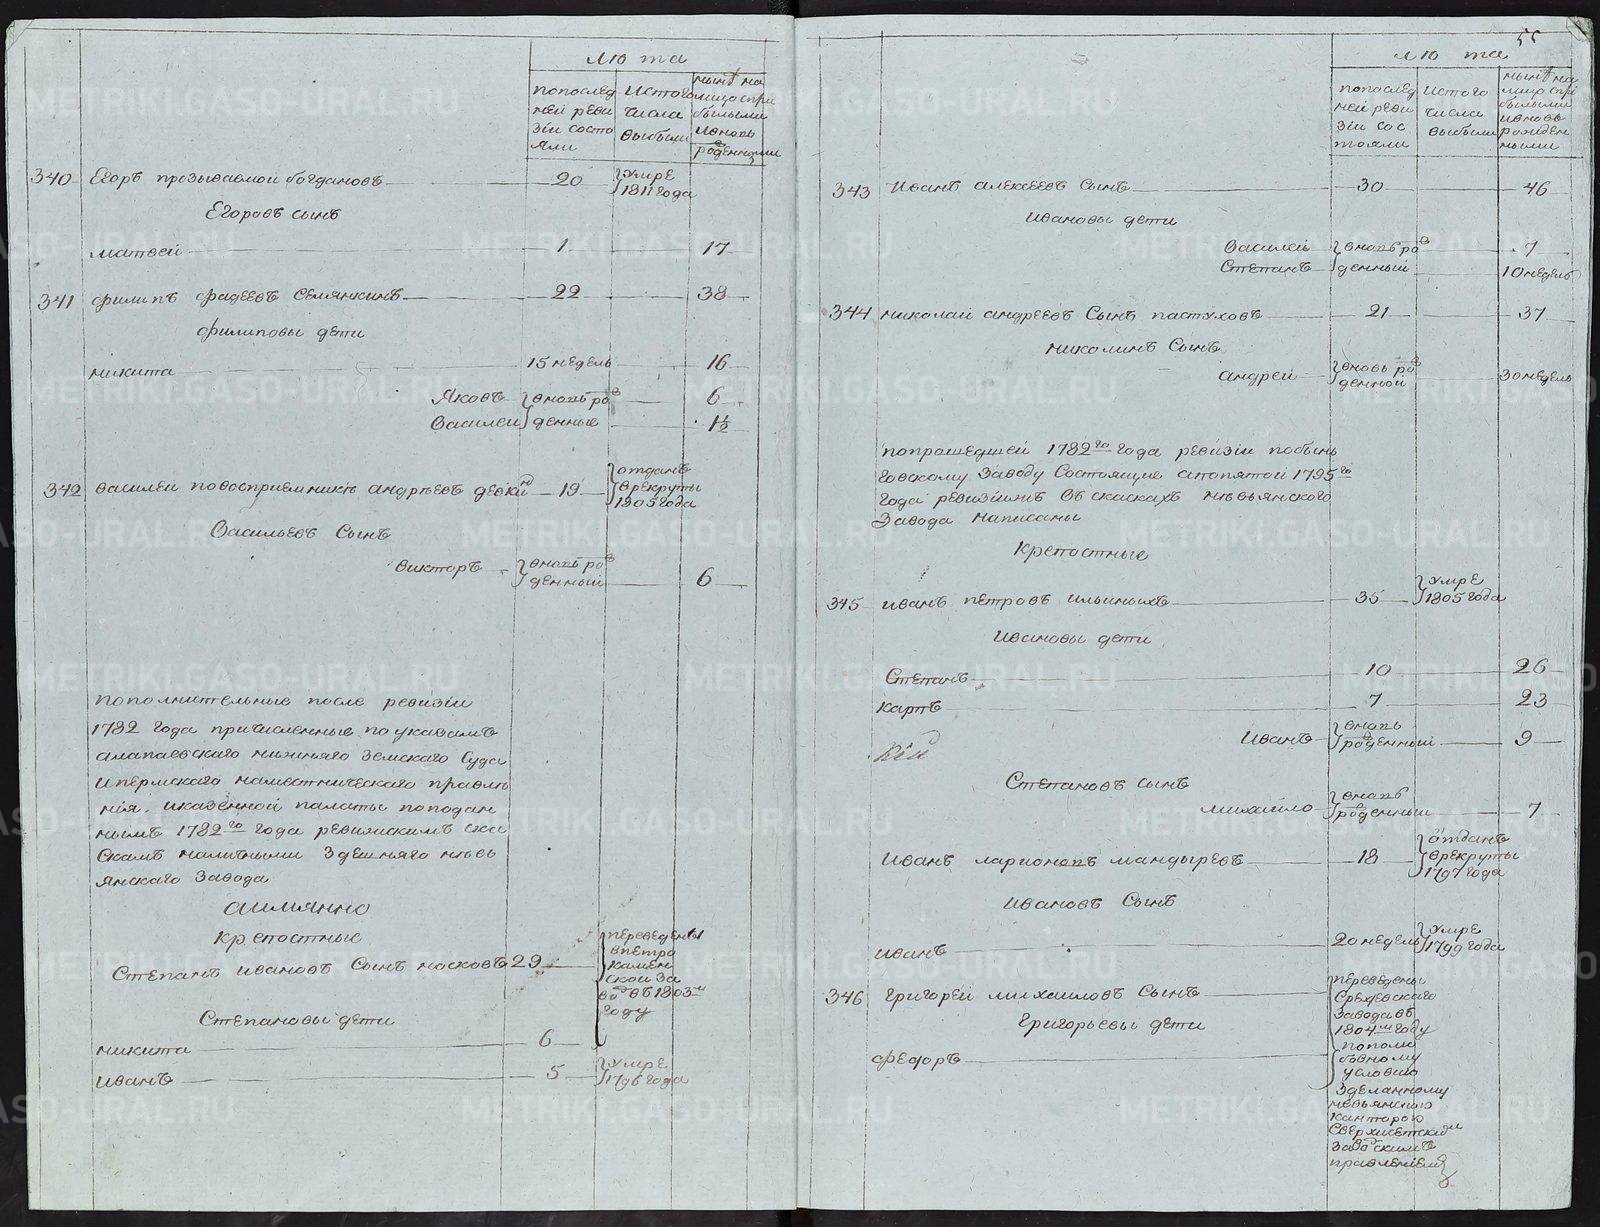 лѣта
попослед ней реви зiи состо яли
истого числа выбыли
нынѣ на лицо спри былыми ивновь рожденными
340 Егоръ прозываемои богдановъ 20 умре 1811 года
Егоровъ сынъ
матвеи 1 17
341 филипъ фадеевъ Селянкинъ 22 38
филиповы дети
никита 15 недель 16
Яковъ вновь ро 6
василеи денные 1½
342 василеи повосприемникѣ андрѣевъ девкинъ 19 отданъ врекруты 1805 года
васильевъ Сынъ
викторъ вновь рожденныи 6
пополнительные после ревизiи
1782 года причисленные по указамъ
алапаевскаго нижняго земскаго Суда
ипермскаго наместническаго правле
нiя. иказенной палаты поподан
нымъ 1782го года ревизскимъ ска
Скамъ наличными Здешняго невь
янскаго Завода
аимянно
крепостные
Степанъ ивановъ Сынъ носковъ 29 переведены впетро камен скои За водъ въ 1803м году
Степановы дети
никита 6
иванъ 5 умре 1796 года
55
лѣта
попослед ней реви зiи сос тояли
истого числа выбыли
нынѣ на лицо спри былыми ивновь рожден ными
343 Иванъ алексеевъ Сынъ 30 46
ивановы дети
василеи вновь ро 7
Степанъ денныи 10 недель
344 николаи андреевъ Сынъ пастуховъ 21 37
николинъ Сынъ
андреи вновь рожденнои 30 недель
попрошедшей 1782го года ревизiи побынь
говскому Заводу Состоящие апопятой 1795го
года ревизiинъ въ скаскахъ невьянского
Завода написаны
крепостные
345 иванъ петровъ ильиныхъ 35 умре 1805 года
ивановы дети
Степанъ 10 26
карпъ 7 23
иванъ вновь рожденныи 9
Степановъ сынъ
михаило вновь рожденныи 7
иванъ ларионовъ мандыревъ 18 отданъ врекруты 1797 года
ивановъ Сынъ
иванъ 20 недель умре 1799 года
346 григореи михаиловъ Сынъ
григорьевы дети
федоръ
переведены
Срежевскаго
Завода въ
1804м году
пополю
бовному
условию
Зделанному
невьянскою
канторою
Сверхисетским
Заводскимъ
правлениемъ